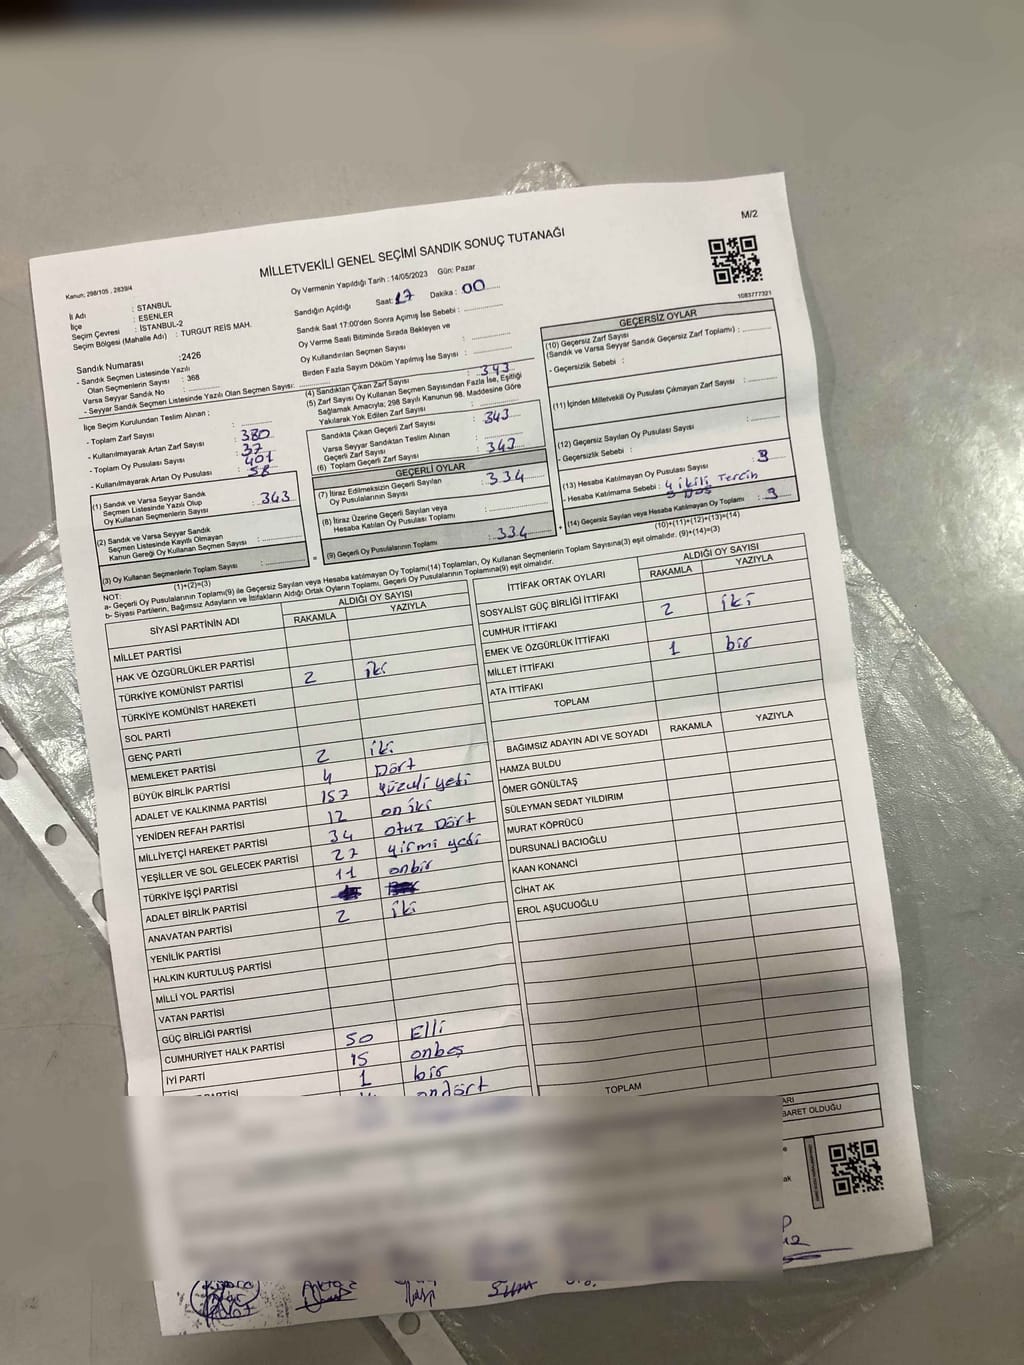 M/2
MİLLETVEKİLİ GENEL SEÇİMİ SANDIK SONUÇ TUTANAĞI
Kanun: 298/105 , 2839/4
Oy Vermenin Yapıldığı Tarih : 14/05/2023 Gün: Pazar
1083777321
İl Adı : STANBUL
İlçe : ESENLER
Seçim Çevresi : İSTANBUL-2
Seçim Bölgesi (Mahalle Adı) : TURGUT REİS MAH.
Sandık Numarası :2426
- Sandık Seçmen Listesinde Yazılı
Olan Seçmenlerin Sayısı : 368
Varsa Seyyar Sandık No :
- Seyyar Sandık Seçmen Listesinde Yazılı Olan Seçmen Sayısı:
Sandığın Açıldığı Saat: 17 Dakika : 00
Sandık Saat 17:00'den Sonra Açılmış İse Sebebi :
Oy Verme Saati Bitiminde Sırada Bekleyen ve
Oy Kullandırılan Seçmen Sayısı :
Birden Fazla Sayım Döküm Yapılmış İse Sayısı :
İlçe Seçim Kurulundan Teslim Alınan ;
- Toplam Zarf Sayısı : 380
- Kullanılmayarak Artan Zarf Sayısı : 37
- Toplam Oy Pusulası Sayısı : 401
- Kullanılmayarak Artan Oy Pusulası : 58
(1) Sandık ve Varsa Seyyar Sandık
Seçmen Listesinde Yazılı Olup
Oy Kullanan Seçmenlerin Sayısı : 343
(2) Sandık ve Varsa Seyyar Sandık
Seçmen Listesinde Kayıtlı Olmayan
Kanun Gereği Oy Kullanan Seçmen Sayısı :
(3) Oy Kullanan Seçmenlerin Toplam Sayısı :
(1)+(2)=(3)
(4) Sandıktan Çıkan Zarf Sayısı : 343
(5) Zarf Sayısı Oy Kullanan Seçmen Sayısından Fazla İse, Eşitliği
Sağlamak Amacıyla, 298 Sayılı Kanunun 98. Maddesine Göre
Yakılarak Yok Edilen Zarf Sayısı :
Sandıkta Çıkan Geçerli Zarf Sayısı : 343
Varsa Seyyar Sandıktan Teslim Alınan
Geçerli Zarf Sayısı :
(6) Toplam Geçerli Zarf Sayısı : 343
GEÇERLİ OYLAR
(7) İtiraz Edilmeksizin Geçerli Sayılan
Oy Pusulalarının Sayısı : 334
(8) İtiraz Üzerine Geçerli Sayılan veya
Hesaba Katılan Oy Pusulası Toplamı :
= (9) Geçerli Oy Pusulalarının Toplamı : 334 +
GEÇERSİZ OYLAR
(10) Geçersiz Zarf Sayısı
(Sandık ve Varsa Seyyar Sandık Geçersiz Zarf Toplamı) :
- Geçersizlik Sebebi :
(11) İçinden Milletvekili Oy Pusulası Çıkmayan Zarf Sayısı :
(12) Geçersiz Sayılan Oy Pusulası Sayısı :
- Geçersizlik Sebebi :
(13) Hesaba Katılmayan Oy Pusulası Sayısı : 9
- Hesaba Katılmama Sebebi : 4 ikili Tercih
5 Boş
(14) Geçersiz Sayılan veya Hesaba Katılmayan Oy Toplamı : 9
(10)+(11)+(12)+(13)=(14)
NOT:
a- Geçerli Oy Pusulalarının Toplamı(9) ile Geçersiz Sayılan veya Hesaba katılmayan Oy Toplamı(14) Toplamları, Oy Kullanan Seçmenlerin Toplam Sayısına(3) eşit olmalıdır. (9)+(14)=(3)
b- Siyasi Partilerin, Bağımsız Adayların ve İttifakların Aldığı Ortak Oyların Toplamı, Geçerli Oy Pusulalarının Toplamına(9) eşit olmalıdır.
SİYASİ PARTİNİN ADI
ALDIĞI OY SAYISI
RAKAMLA YAZIYLA
MİLLET PARTİSİ
HAK VE ÖZGÜRLÜKLER PARTİSİ
TÜRKİYE KOMÜNİST PARTİSİ 2 iki
TÜRKİYE KOMÜNİST HAREKETİ
SOL PARTİ
GENÇ PARTİ
MEMLEKET PARTİSİ 2 iki
BÜYÜK BİRLİK PARTİSİ 4 Dört
ADALET VE KALKINMA PARTİSİ 157 yüzelli yedi
YENİDEN REFAH PARTİSİ 12 on iki
MİLLİYETÇİ HAREKET PARTİSİ 34 otuz Dört
YEŞİLLER VE SOL GELECEK PARTİSİ 27 yirmi yedi
TÜRKİYE İŞÇİ PARTİSİ 11 onbir
ADALET BİRLİK PARTİSİ
ANAVATAN PARTİSİ 2 iki
YENİLİK PARTİSİ
HALKIN KURTULUŞ PARTİSİ
MİLLİ YOL PARTİSİ
VATAN PARTİSİ
GÜÇ BİRLİĞİ PARTİSİ
CUMHURİYET HALK PARTİSİ 50 Elli
İYİ PARTİ 15 onbeş
PARTİSİ 1 bir
ondört
İTTİFAK ORTAK OYLARI
ALDIĞI OY SAYISI
RAKAMLA YAZIYLA
SOSYALİST GÜÇ BİRLİĞİ İTTİFAKI
CUMHUR İTTİFAKI 2 iki
EMEK VE ÖZGÜRLÜK İTTİFAKI
MİLLET İTTİFAKI 1 bir
ATA İTTİFAKI
TOPLAM
BAĞIMSIZ ADAYIN ADI VE SOYADI RAKAMLA YAZIYLA
HAMZA BULDU
ÖMER GÖNÜLTAŞ
SÜLEYMAN SEDAT YILDIRIM
MURAT KÖPRÜCÜ
DURSUNALİ BACIOĞLU
KAAN KONANCİ
CİHAT AK
EROL AŞUCUOĞLU
TOPLAM
ARI
BARET OLDUĞU